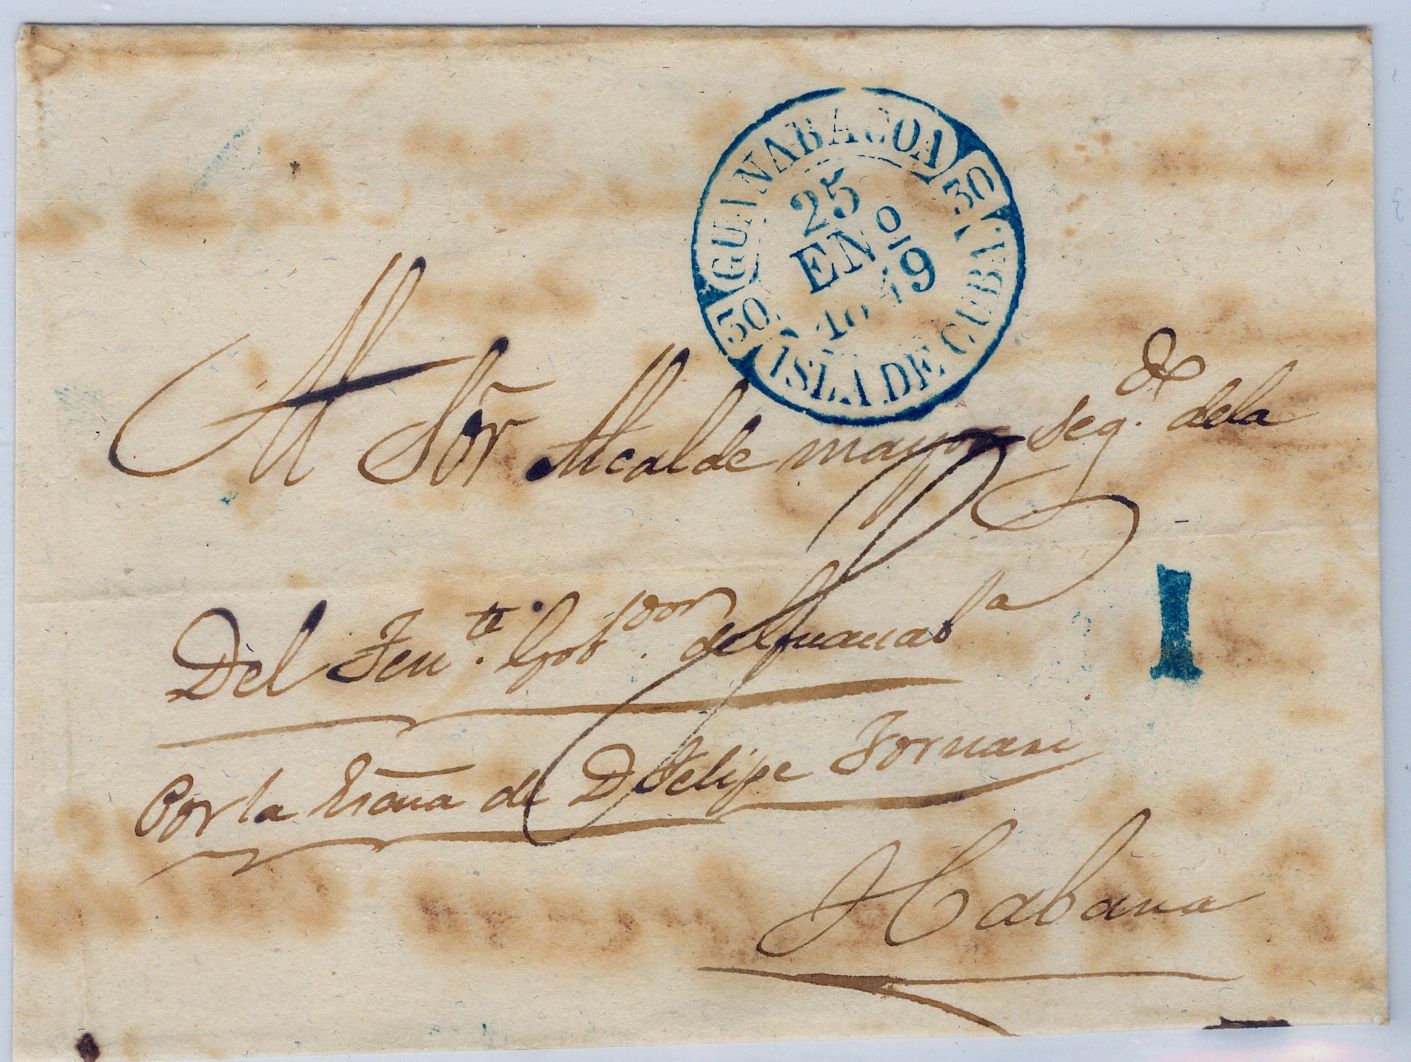 GUANABACOA
30
25
ENº
1849
30
ISLA DE CUBA
Al Sōr Alcalde mayor seg.do dela
1
Del Ten.te Gob.dor de Guanab.a
Por la Esc̄na de D Felipe Fornari
Habana